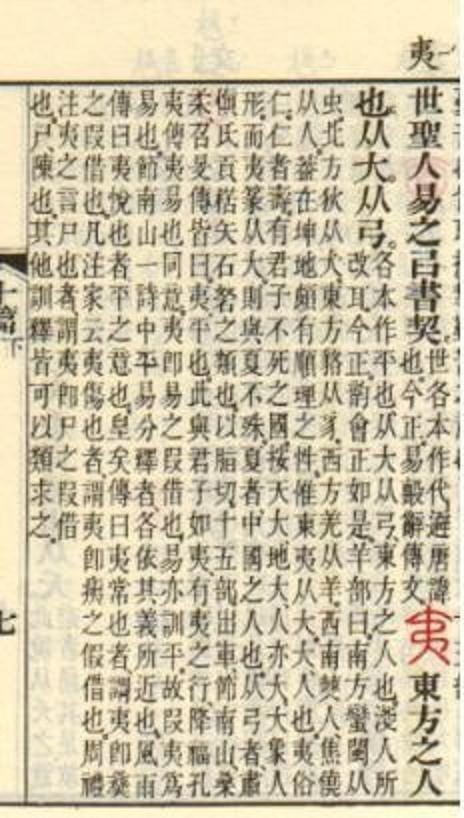 夷
世聖人易之㠯書契。世各本作代。避唐諱
也。今正。易毄辭傳文。
夷 東方之人
也。从大从弓。各本作平也。从大从弓。東方之人也。淺人所
改耳。今正。韵會正如是。羊部曰。南方蠻閩从
虫。北方狄从犬。東方貉从豸。西方羌从羊。西南僰人焦僥
从人。葢在坤地頗有順理之性。惟東夷从大。大人也。夷俗
仁。仁者壽。有君子不死之國。按天大。地大。人亦大。大象人
形。而夷篆从大。則與夏不殊。夏者、中國之人也。从弓者、肅
愼氏貢楛矢石砮之類也。以脂切。十五部。出車、節南山、桑
柔、召旻傳皆曰。夷、平也。此與君子如夷、有夷之行、降福孔
夷傳夷易也同意。夷卽易之叚借也。易亦訓平。故叚夷爲
易也。節南山一詩中平易分釋者。各依其義所近也。風雨
傳曰。夷、悅也者、平之意也。皇矣傳曰。夷、常也者。謂夷卽彝
之叚借也。凡注家云夷傷也者。謂夷卽痍之假借也。周禮
注夷之言尸也者。謂夷卽尸之叚借
也。尸、陳也。其他訓釋皆可以類求之。
十篇下
七